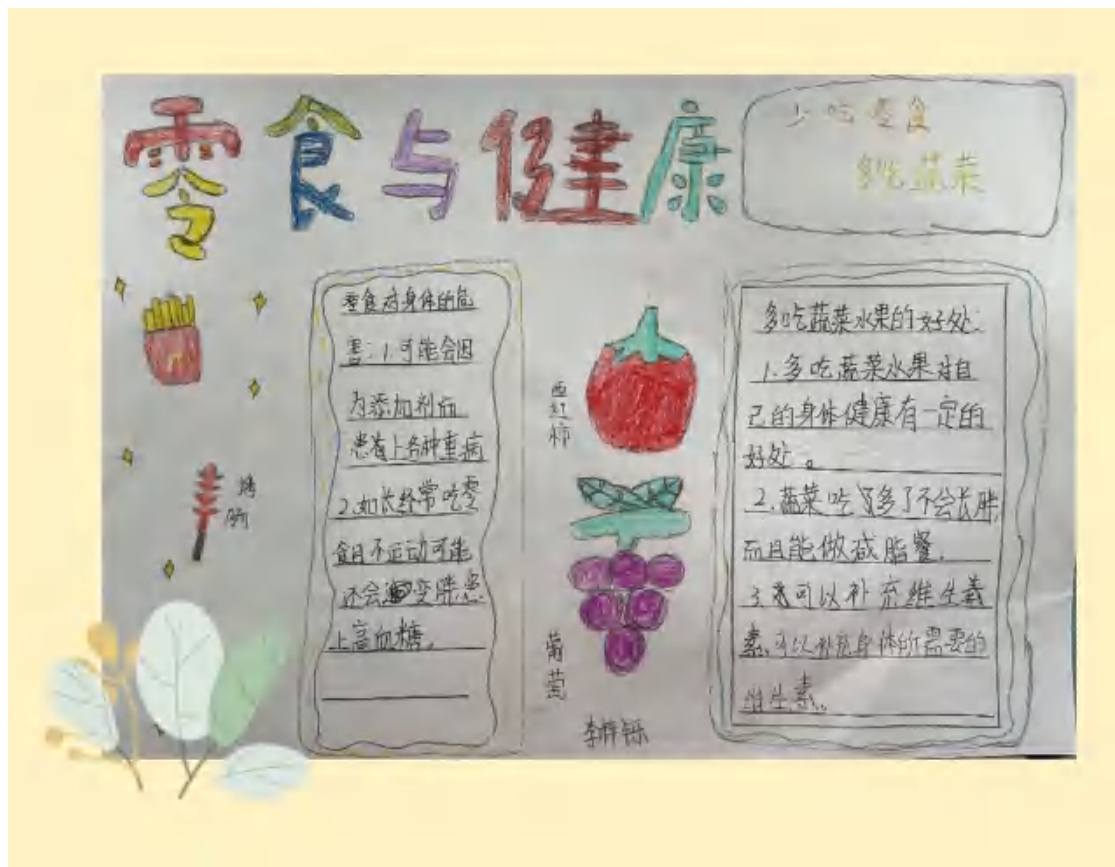 零食与健康
少吃零食
多吃蔬菜
零食对身体的危
害：1.可能会因
为添加剂而
患有上各种重病
2.如长经常吃零
食且不运动可能
还会变胖患
上高血糖。
烤
肠
西红柿
葡萄
多吃蔬菜水果的好处：
1.多吃蔬菜水果对自
己的身体健康有一定的
好处。
2.蔬菜吃多了不会长胖，
而且能做减脂餐。
3.可以补充维生素
素，可以补充身体所需要的
维生素。